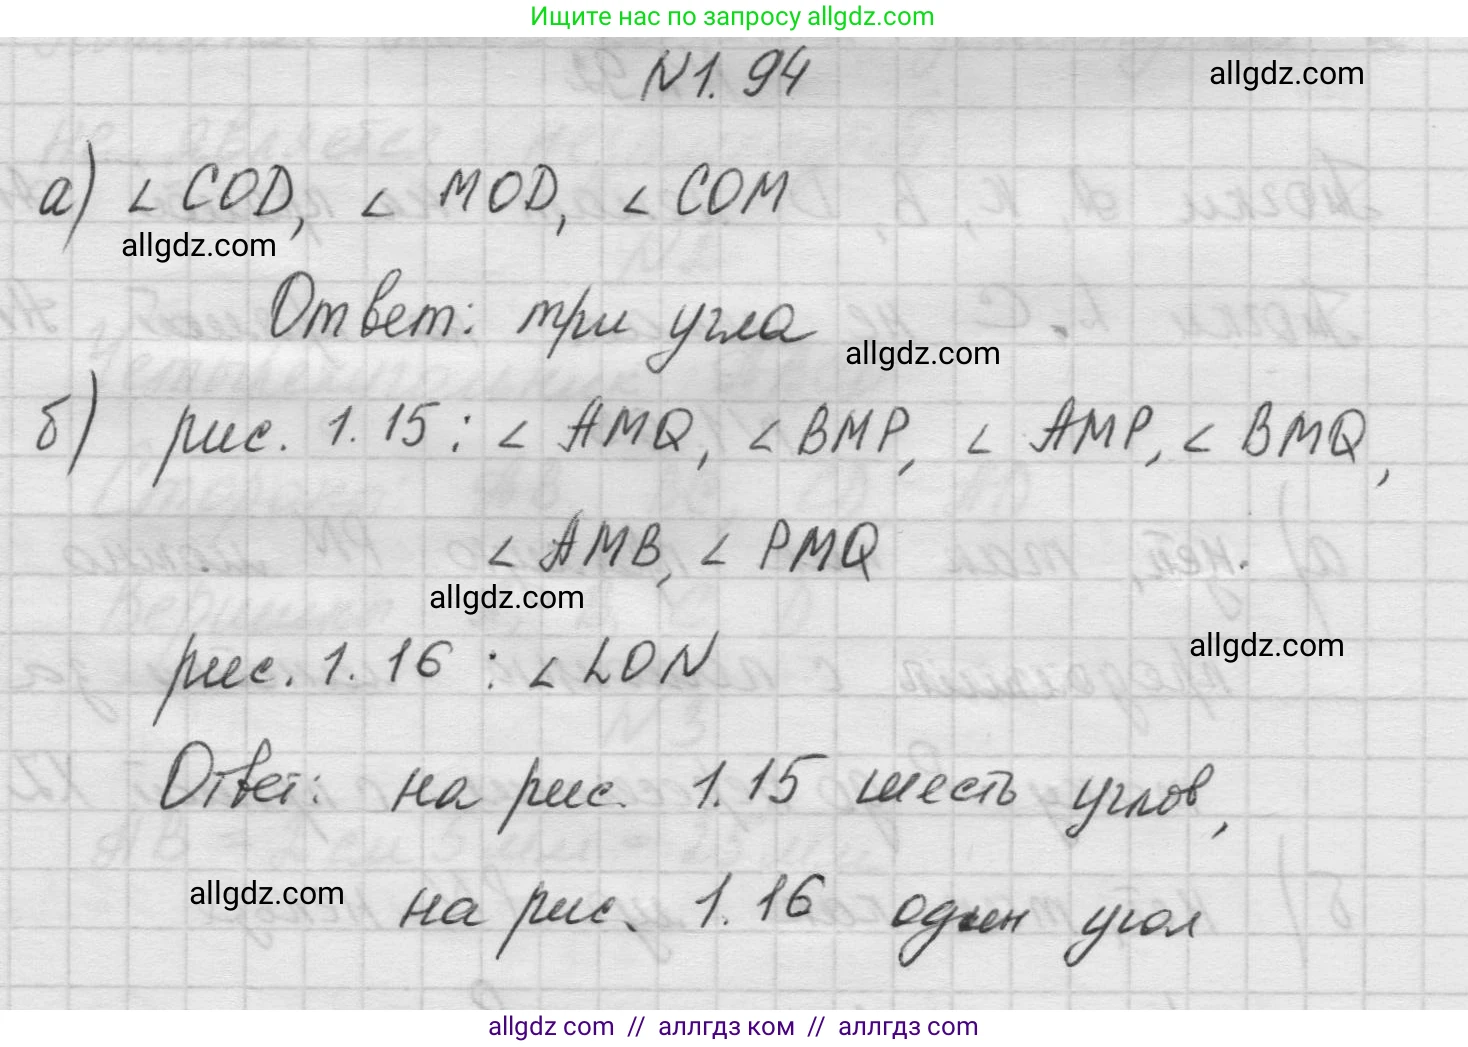 Ищите нас по запросу allgdz.com
N1.94
allgdz.com
а) ∠ COD, ∠ MOD, ∠ COM
allgdz.com
Ответ: три угла
allgdz.com
б) рис. 1.15: ∠ AMQ, ∠ BMP, ∠ AMP, ∠ BMQ,
∠ AMB, ∠ PMQ
allgdz.com
allgdz.com
рис. 1.16: ∠ LON
Ответ: на рис. 1.15 шесть углов,
allgdz.com
на рис. 1.16 один угол
allgdz com // аллгдз ком // аллгдз com